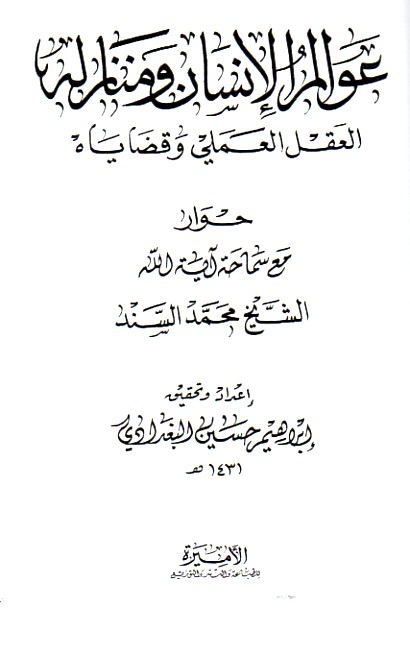 عوالم الإنسان ومنازله
العقل العملي وقضاياه
حوار
مع سماحة آية الله
الشيخ محمد السند
إعداد وتحقيق
إبراهيم حسين البغدادي
١٤٣١ هـ
الأميرة
للطباعة والنشر والتوزيع